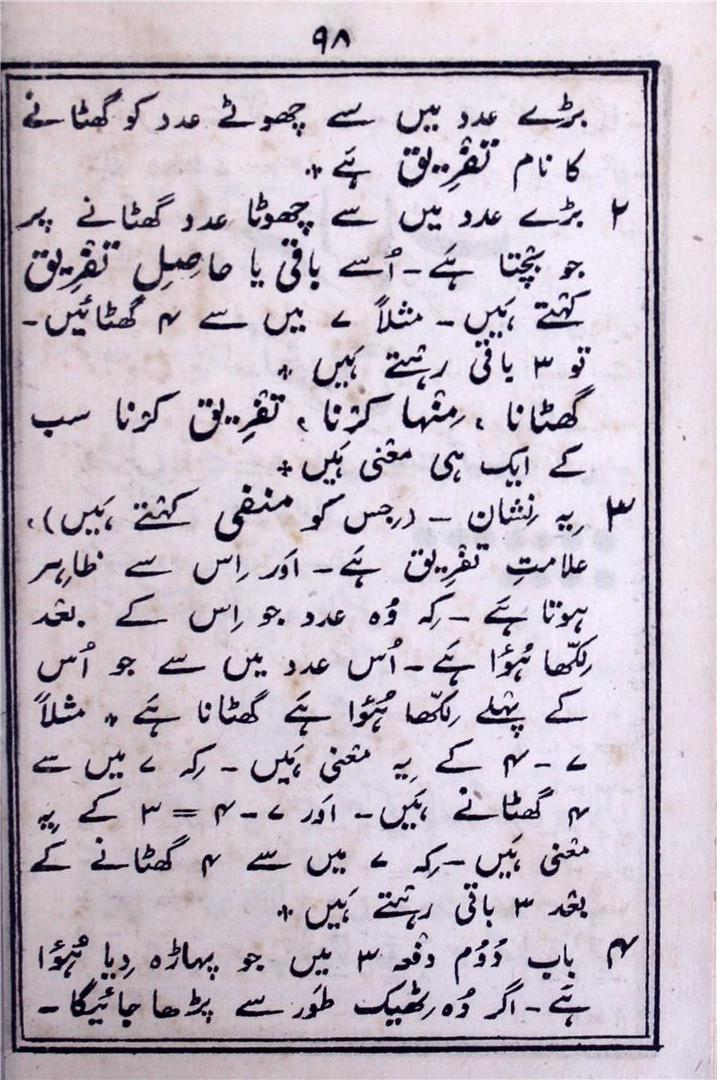 ۹۸
بڑے عدد میں سے چھوٹے عدد کو گھٹانے
کا نام تفْرِیق ہَے *
۲ بڑے عدد میں سے چھوٹا عدد گھٹانے پر
جو بچْتا ہَے - اُسے باقی یا حاصِلِ تفْرِیق
کہْتے ہَیں - مثلاً ۷ میں سے ۴ گھٹائیں -
تو ۳ باقی رہْتے ہَیں *
گھٹانا ، مِنْہا کرْنا ، تفْرِیق کرْنا سب
کے ایک ہی معْنی ہَیں *
۳ یِہ نِشان - (جِس کو منْفی کہْتے ہَیں) ،
علامتِ تفْرِیق ہَے - اَور اِس سے ظاہِر
ہوتا ہَے - کِہ وُہ عدد جو اِس کے بعْد
لِکّھا ہُؤا ہَے - اُس عدد میں سے جو اُس
کے پہْلے لِکّھا ہُؤا ہَے گھٹانا ہَے * مثلاً
۷ - ۴ کے یِہ معْنی ہَیں - کِہ ۷ میں سے
۴ گھٹانے ہَیں - اَور ۷ - ۴ = ۳ کے یِہ
معْنی ہَیں - کِہ ۷ میں سے ۴ گھٹانے کے
بعْد ۳ باقی رہْتے ہَیں *
۴ باب دُوُم دفْعہ ۳ میں جو پہاڑہ دِیا ہُؤا
ہَے - اگر وُہ ٹِھیک طَور سے پڑھا جائیگا -